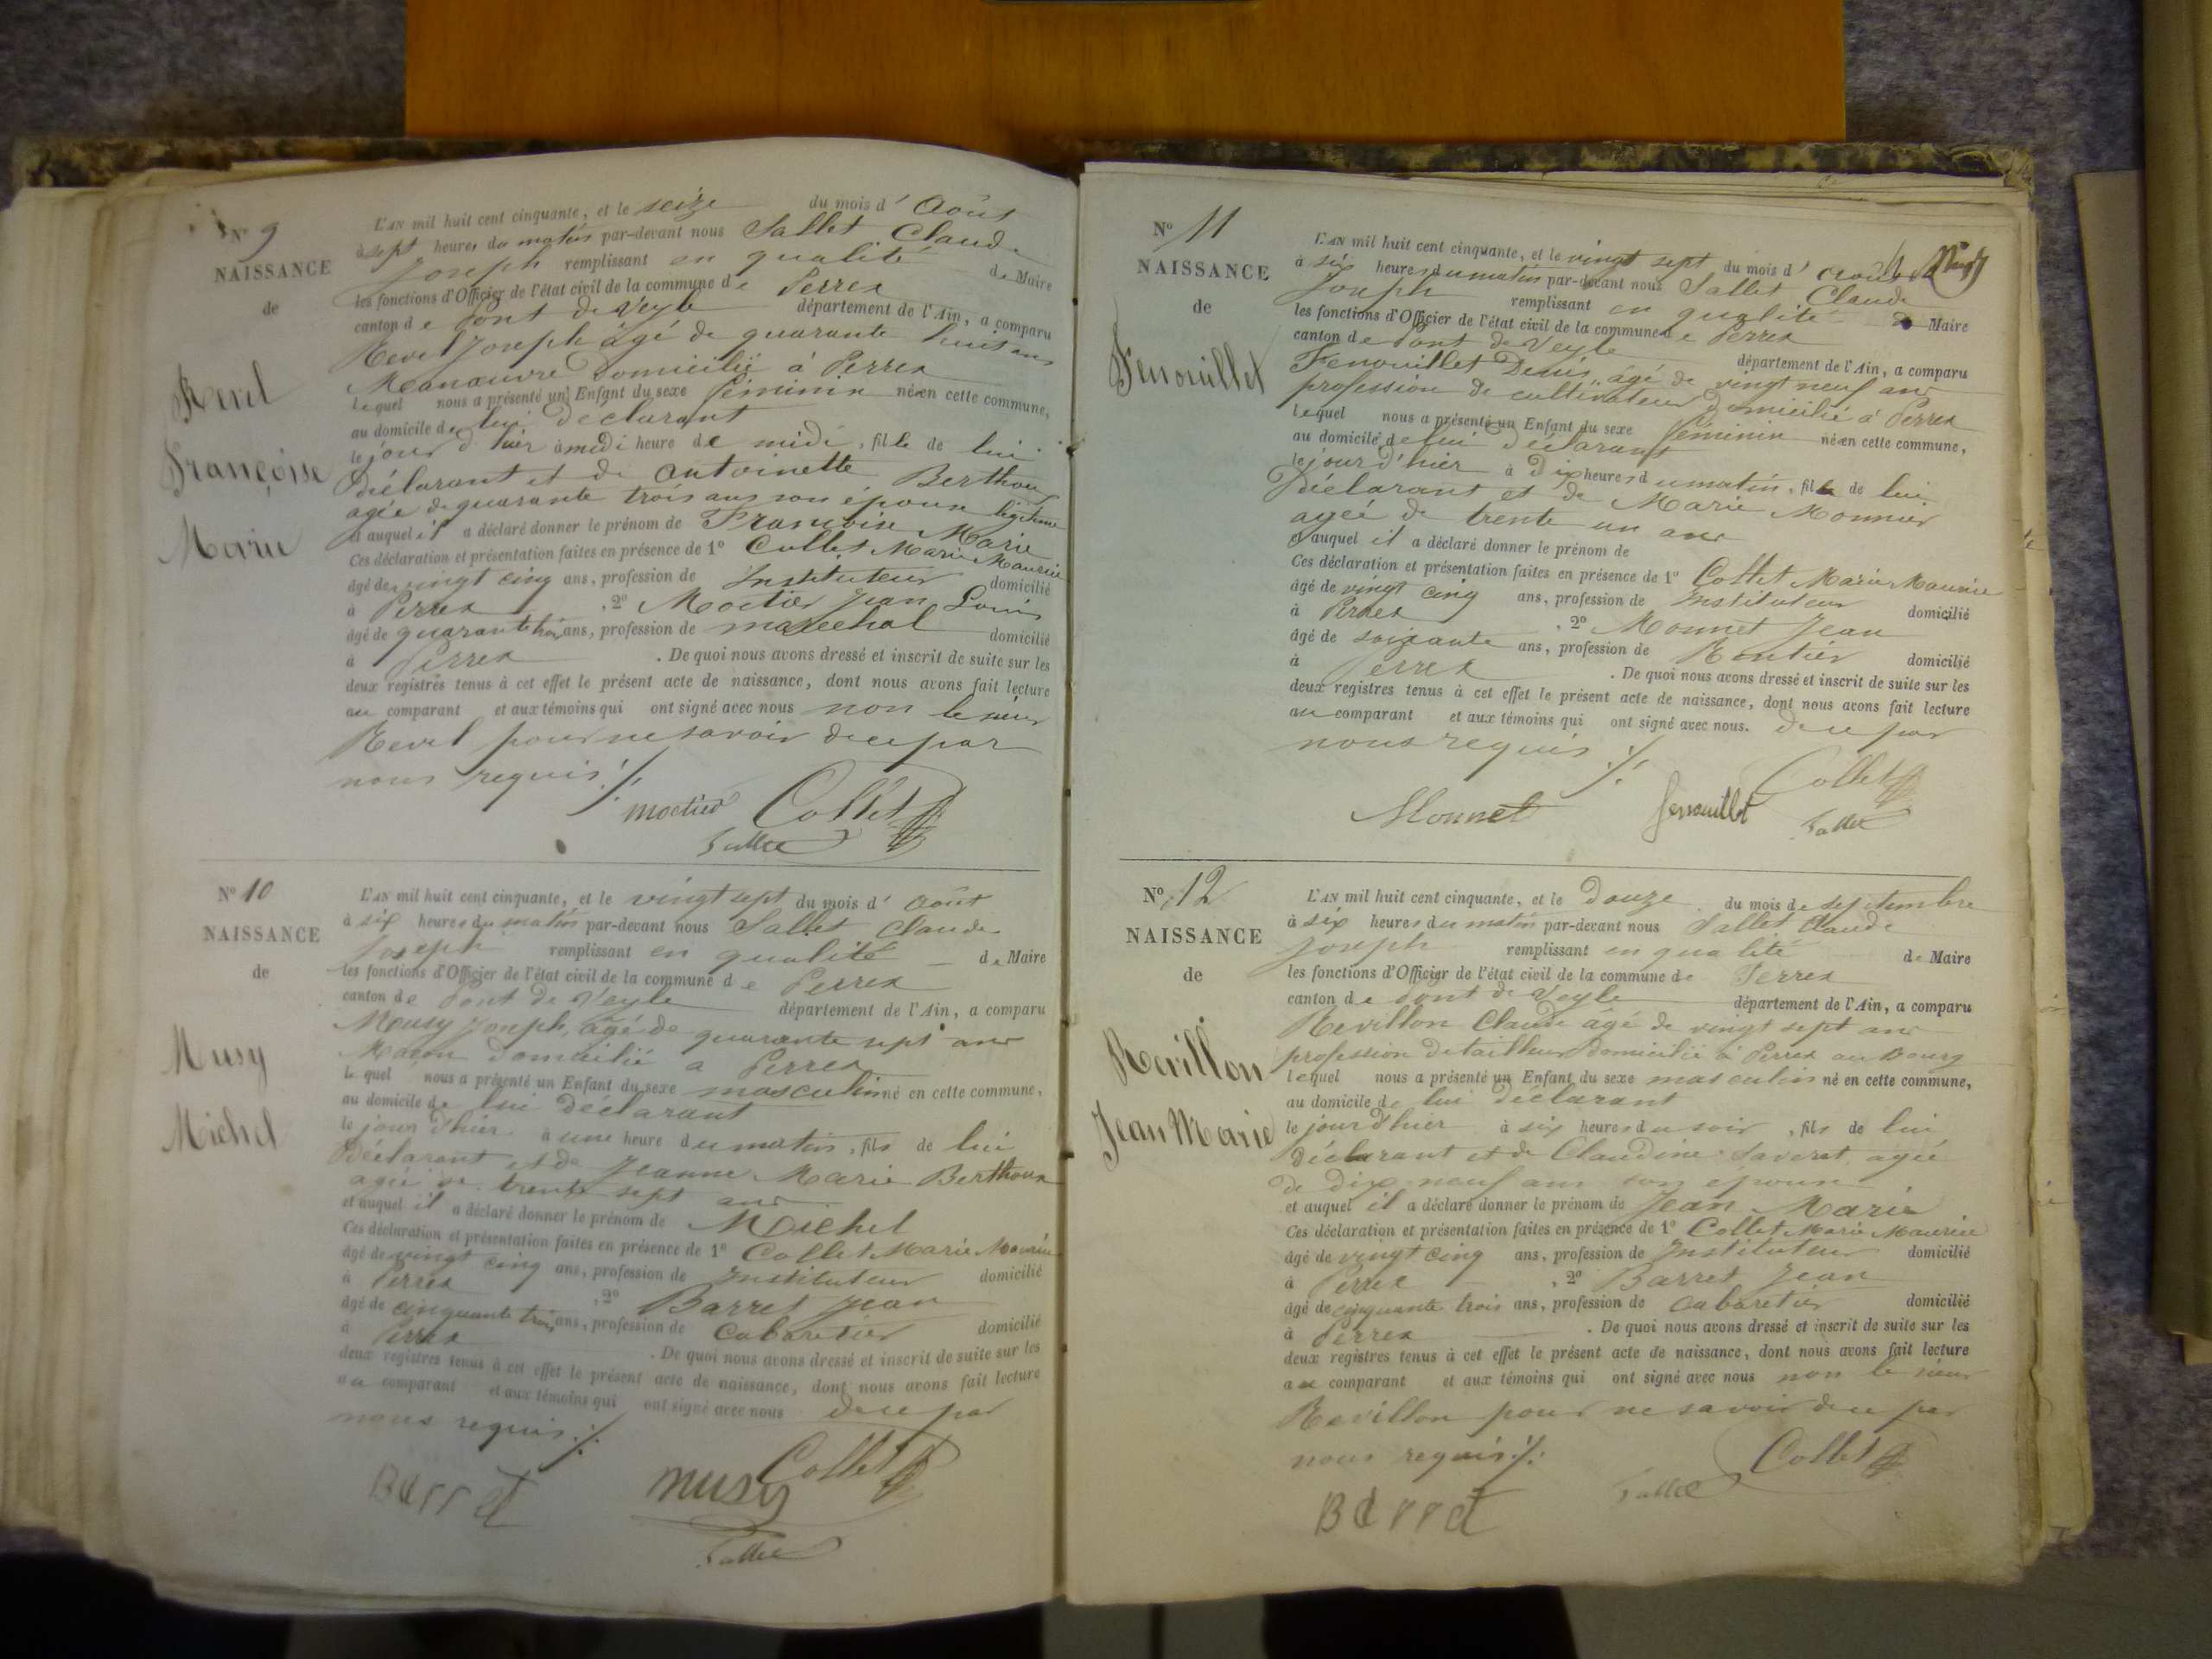 N° 9
NAISSANCE
de
Revel
Françoise
Marie
L'AN mil huit cent cinquante, et le seize du mois d' Août
à sept heures du matin par-devant nous Sallet Claude
Joseph remplissant en qualité de Maire
les fonctions d'Officier de l'état civil de la commune de Perrex
canton de Pont de Veyle département de l'Ain, a comparu
Revel Joseph âgé de quarante huit ans
Manœuvre domicilié à Perrex
lequel nous a présenté un Enfant du sexe féminin née en cette commune,
au domicile de lui déclarant
le jour d'hier à midi heure de midi, fille de lui
Déclarant et de Antoinette Berthoux
agée de quarante trois ans son épouse légitime
et auquel il a déclaré donner le prénom de Françoise Marie
Ces déclaration et présentation faites en présence de 1° Collet Marie Maurice
âgé de vingt cinq ans, profession de Instituteur domicilié
à Perrex , 2° Moctier Jean Louis
âgé de quarante trois ans, profession de marechal domicilié
à Perrex . De quoi nous avons dressé et inscrit de suite sur les
deux registres tenus à cet effet le présent acte de naissance, dont nous avons fait lecture
au comparant et aux témoins qui ont signé avec nous non le sieur
Revel pour ne savoir de ce par
nous requis ./.
Moctier Collet
Sallet
N° 10
NAISSANCE
de
Musy
Michel
L'AN mil huit cent cinquante, et le vingt sept du mois d' Août
à six heures du matin par-devant nous Sallet Claude
Joseph remplissant en qualité de Maire
les fonctions d'Officier de l'état civil de la commune de Perrex
canton de Pont de Veyle département de l'Ain, a comparu
Musy Joseph, âgé de quarante sept ans
Maçon domicilié a Perrex
lequel nous a présenté un Enfant du sexe masculin né en cette commune,
au domicile de lui déclarant
le jour d'hier à une heure du matin, fils de lui
Déclarant et de Jeanne Marie Berthoux
agée de trente sept ans
et auquel il a déclaré donner le prénom de Michel
Ces déclaration et présentation faites en présence de 1° Collet Marie Maurice
âgé de vingt cinq ans, profession de Instituteur domicilié
à Perrex , 2° Barret Jean
âgé de cinquante trois ans, profession de Cabaretier domicilié
à Perrex . De quoi nous avons dressé et inscrit de suite sur les
deux registres tenus à cet effet le présent acte de naissance, dont nous avons fait lecture
au comparant et aux témoins qui ont signé avec nous de ce par
nous requis ./.
Barret musy Collet
Sallet
N° 11
NAISSANCE
de
Fenouillet
L'AN mil huit cent cinquante, et le vingt sept du mois d' Août
à six heures du matin par-devant nous Sallet Claude
Joseph remplissant en qualité de Maire
les fonctions d'Officier de l'état civil de la commune de Perrex
canton de Pont de Veyle département de l'Ain, a comparu
Fenouillet Denis, âgé de vingt neuf ans
profession de cultivateur domicilié à Perrex
lequel nous a présenté un Enfant du sexe féminin née en cette commune,
au domicile de lui déclarant
le jour d'hier à dix heures du matin, fille de lui
Déclarant et de Marie Monnier
agée de trente un ans
et auquel il a déclaré donner le prénom de
Ces déclaration et présentation faites en présence de 1° Collet Marie Maurice
âgé de vingt cinq ans, profession de Instituteur domicilié
à Perrex , 2° Monnet Jean
âgé de soixante ans, profession de Rentier domicilié
à Perrex . De quoi nous avons dressé et inscrit de suite sur les
deux registres tenus à cet effet le présent acte de naissance, dont nous avons fait lecture
au comparant et aux témoins qui ont signé avec nous. de ce par
nous requis ./.
Monnet fenouillet Collet
Sallet
N° 12
NAISSANCE
de
Revillon
Jean Marie
L'AN mil huit cent cinquante, et le Douze du mois de septembre
à six heures du matin par-devant nous Sallet Claude
Joseph remplissant en qualité de Maire
les fonctions d'Officier de l'état civil de la commune de Perrex
canton de Pont de Veyle département de l'Ain, a comparu
Revillon Claude âgé de vingt sept ans
profession de tailleur domicilié à Perrex au Bourg
lequel nous a présenté un Enfant du sexe masculin né en cette commune,
au domicile de lui déclarant
le jour d'hier à six heures du soir, fils de lui
déclarant et de Claudine Saverat agée
de dix neuf ans son épouse
et auquel il a déclaré donner le prénom de Jean Marie
Ces déclaration et présentation faites en présence de 1° Collet Marie Maurice
âgé de vingt cinq ans, profession de Instituteur domicilié
à Perrex , 2° Barret Jean
âgé de cinquante trois ans, profession de Cabaretier domicilié
à Perrex . De quoi nous avons dressé et inscrit de suite sur les
deux registres tenus à cet effet le présent acte de naissance, dont nous avons fait lecture
au comparant et aux témoins qui ont signé avec nous non le sieur
Revillon pour ne savoir de ce par
nous requis ./.
Collet
Barret Sallet